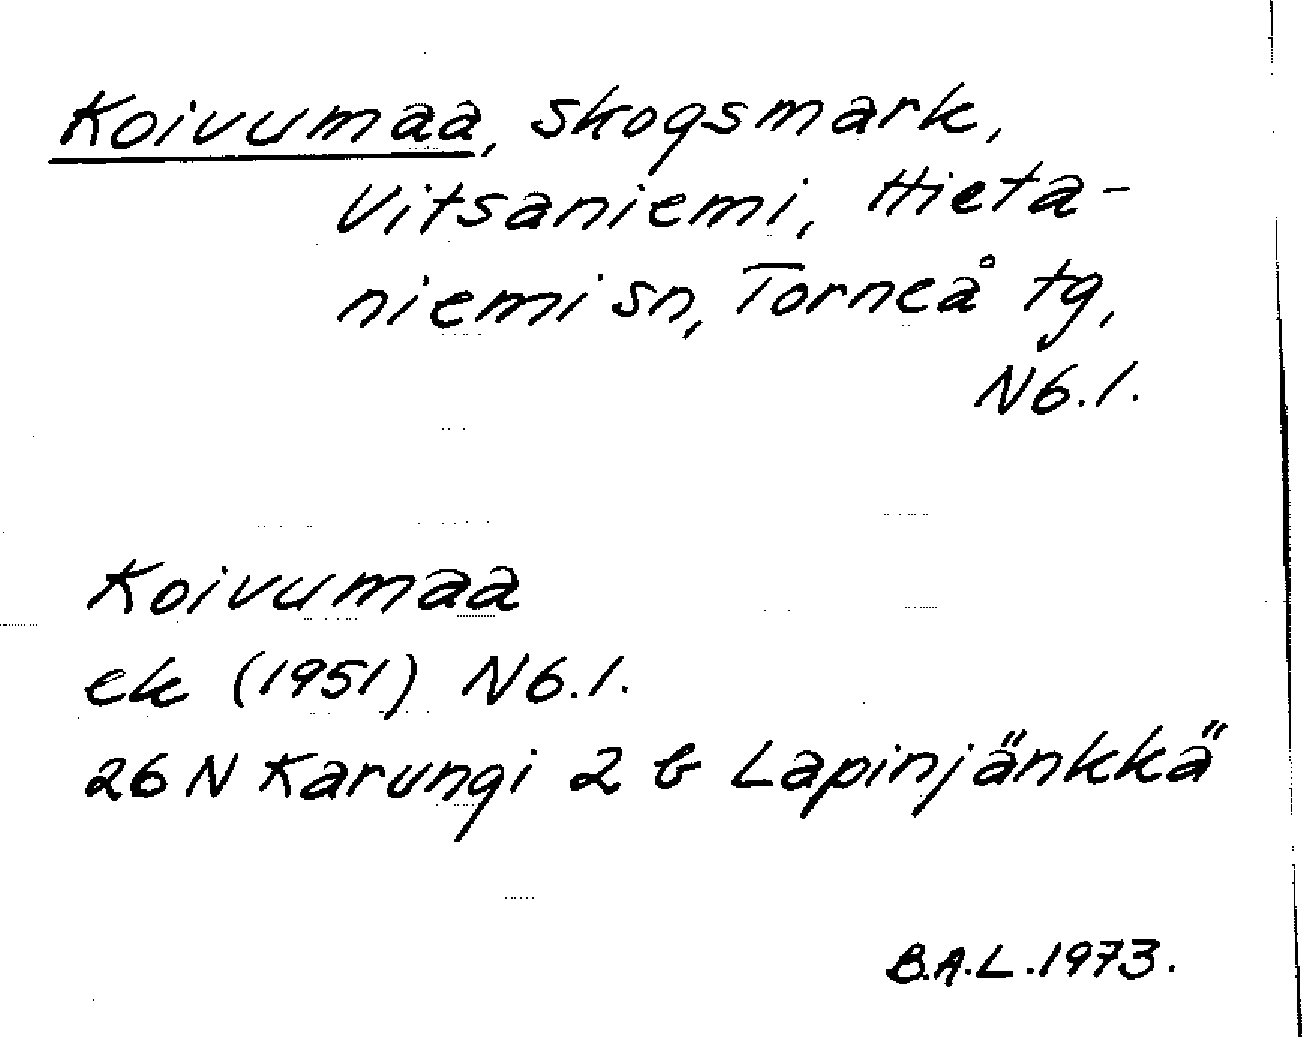 Koivumaa, skogsmark,
Vitsaniemi, Hieta-
niemi sn, Torneå tg,
N6.1.
Koivumaa
ek (1951) N6.1.
26 N Karungi 2 b Lapinjänkkä
B.A.L. 1973.